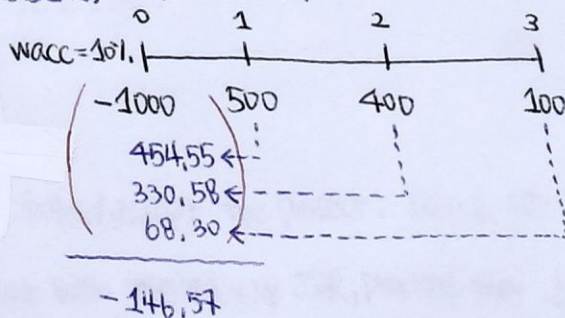 0 1 2 3
WACC=10%
-1000 500 400 100
454,55
330,58
68,30
-146,57